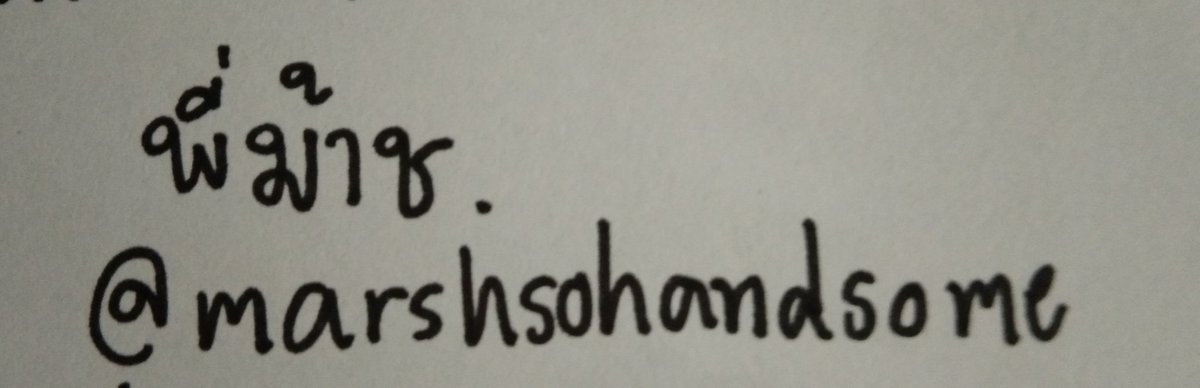 พี่ม้าช.
@marshsohandsome